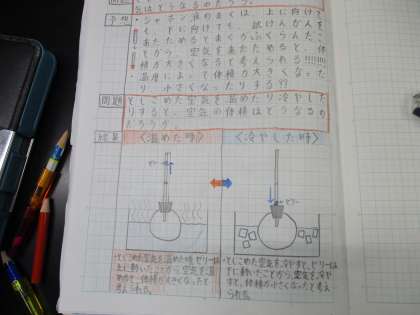 気はどうなるのだろう。
予想
・シャボン液のまくは、上に向けて
も、下に向けても、試けんかんを
あたためるとまくがふくらんだ
から、空気をあたためると、体
積が大きくなると考えられる!!!!!!!
・温度によって体積が大きくなった
り、小さくなったりする??
問題
とじこめた空気を温めたり冷やした
りすると、空気の体積はどうなるの
だろうか。
結果
〈温めた時〉
〈冷やした時〉
ゼリー
ゼリー
・とじこめた空気を温めた時、ゼリーは
上に動いたことから、空気を温
めると、体積が大きくなったと
考えられる。
・とじこめた空気を冷やすと、ゼリーは
下に動いたことから、空気を冷や
すと、体積が小さくなったと考え
られる。